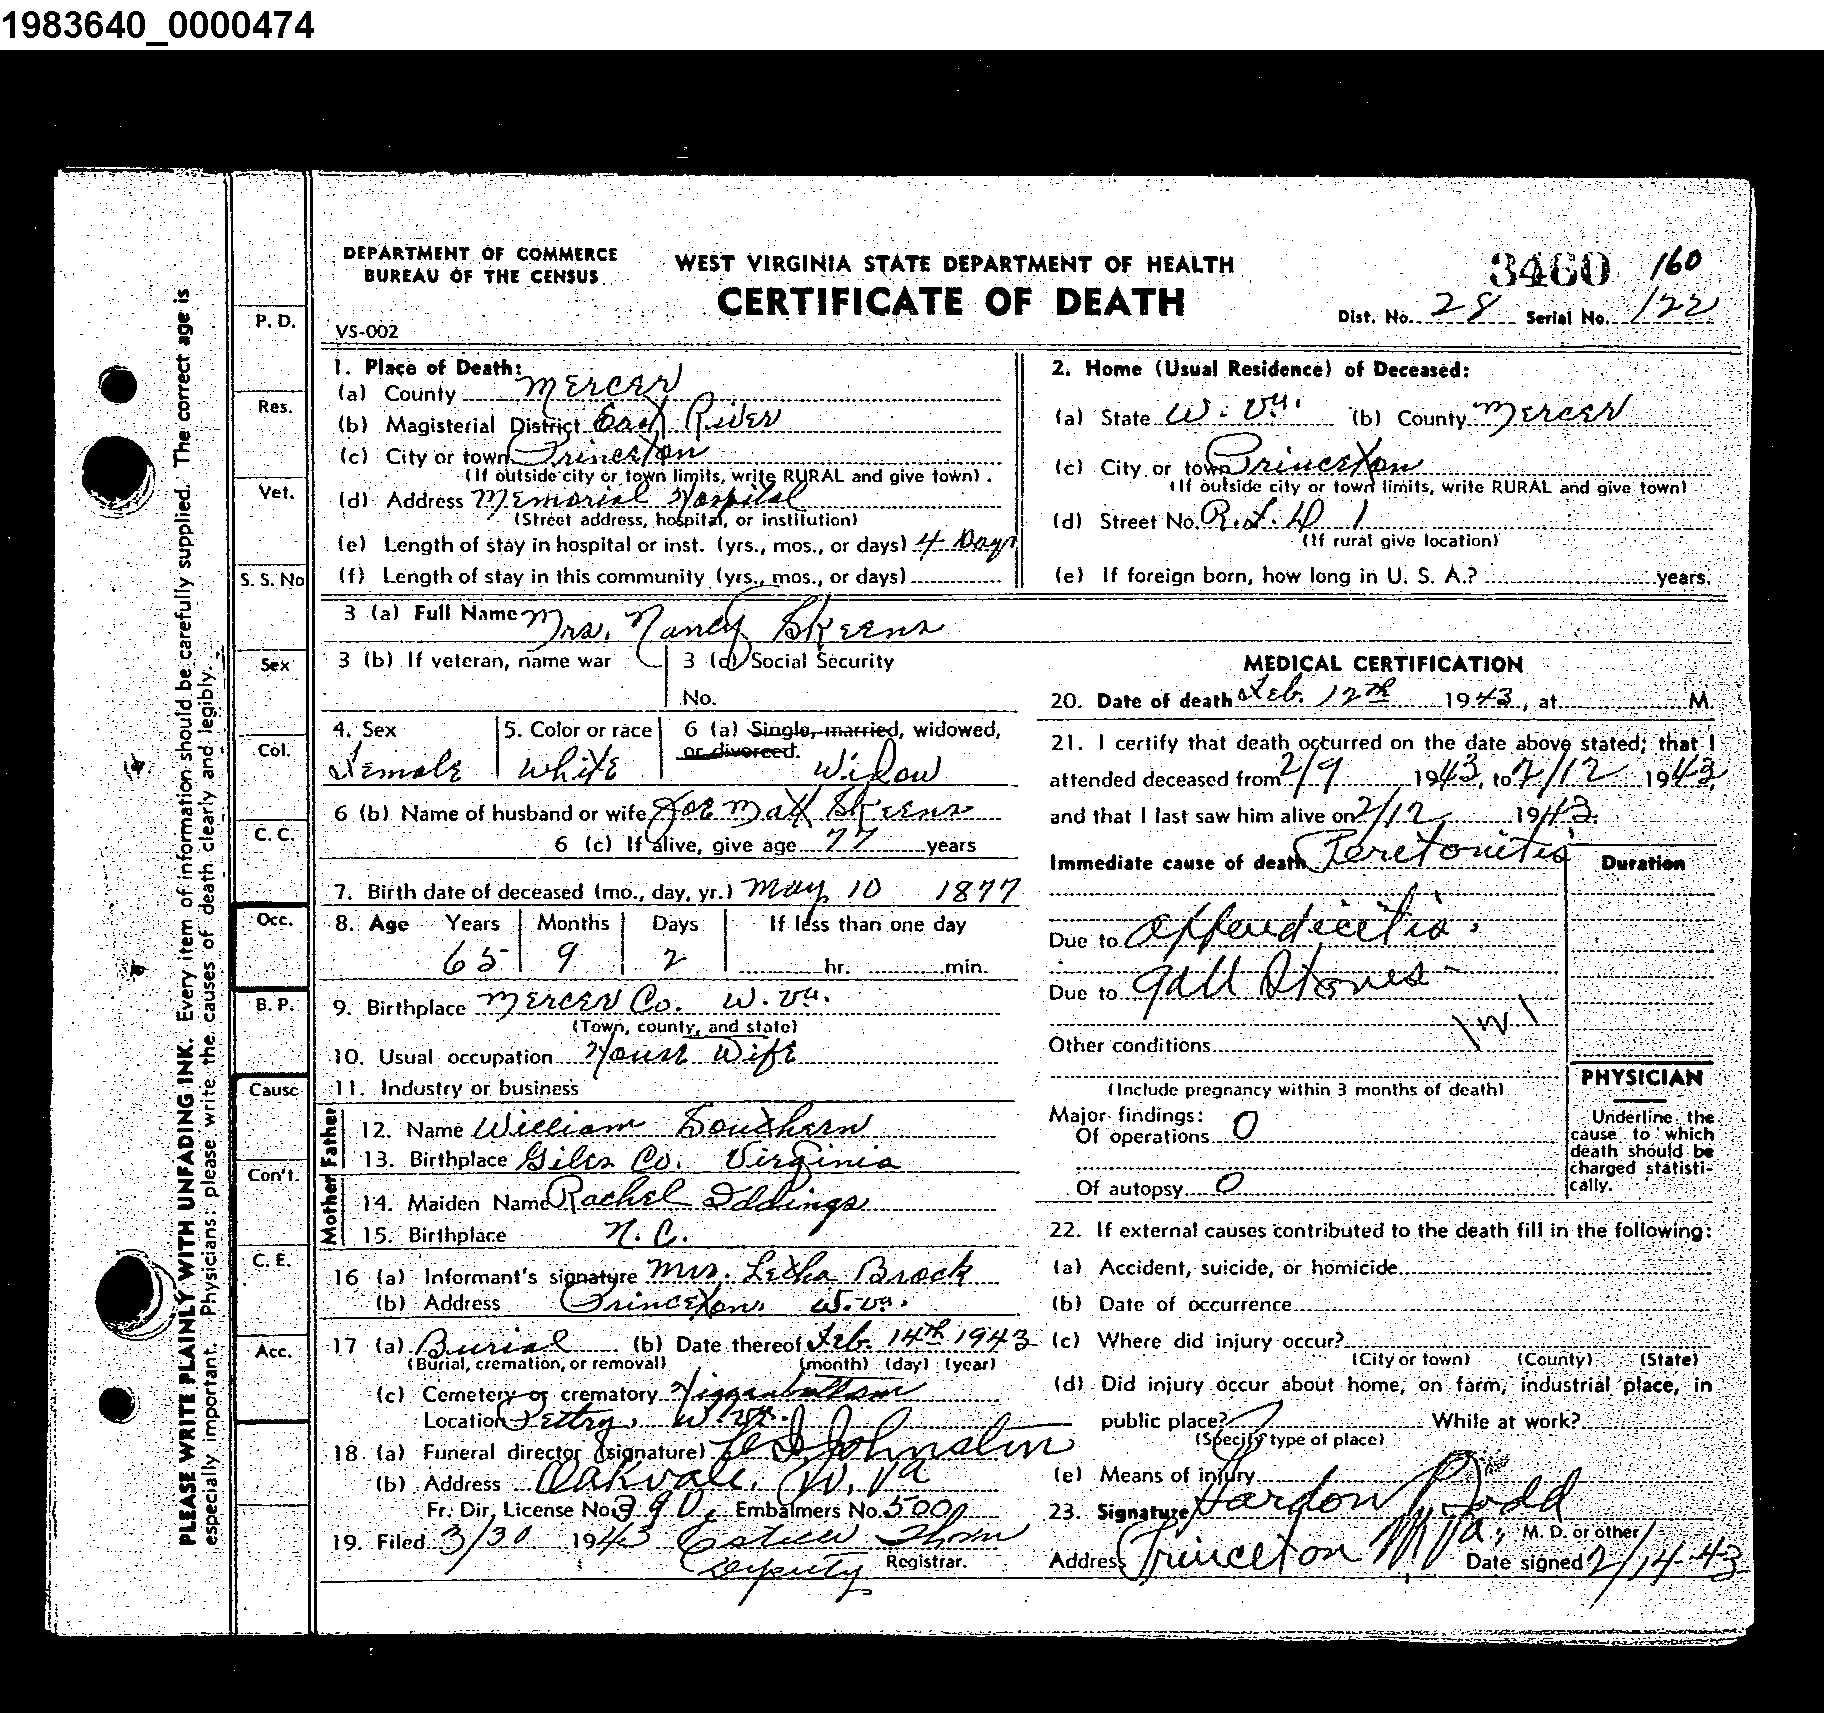 1983640_0000474
DEPARTMENT OF COMMERCE
BUREAU OF THE CENSUS
VS-002
WEST VIRGINIA STATE DEPARTMENT OF HEALTH
CERTIFICATE OF DEATH
3460 160
Dist. No. 28 Serial No. 122
PLEASE WRITE PLAINLY WITH UNFADING INK. Every item of information should be carefully supplied. The correct age is
especially important. Physicians: please write the causes of death clearly and legibly.
P. D.
Res.
Vet.
S. S. No
Sex
Col.
C. C.
Occ.
B. P.
Cause
Con't.
C. E.
Acc.
1. Place of Death:
(a) County Mercer
(b) Magisterial District East River
(c) City or town Princeton
(If outside city or town limits, write RURAL and give town).
(d) Address Memorial Hospital
(Street address, hospital, or institution)
(e) Length of stay in hospital or inst. (yrs., mos., or days) 4 Days
(f) Length of stay in this community (yrs., mos., or days)
2. Home (Usual Residence) of Deceased:
(a) State W. Va. (b) County Mercer
(c) City or town Princeton
(If outside city or town limits, write RURAL and give town)
(d) Street No. R.F.D 1
(If rural give location)
(e) If foreign born, how long in U. S. A.? years.
3 (a) Full Name Mrs. Nancy Skeens
3 (b) If veteran, name war
3 (c) Social Security
No.
4. Sex
Female
5. Color or race
White
6 (a) Single, married, widowed,
or divorced.
Widow
6 (b) Name of husband or wife Joe Matt Skeens
6 (c) If alive, give age 77 years
7. Birth date of deceased (mo., day, yr.) May 10 1877
8. Age Years Months Days If less than one day
65 9 2 hr. min.
9. Birthplace Mercer Co. W. Va.
(Town, county, and state)
10. Usual occupation House Wife
11. Industry or business
Father
12. Name William Southern
13. Birthplace Giles Co. Virginia
Mother
14. Maiden Name Rachel Iddings
15. Birthplace N. C.
16 (a) Informant's signature Mrs. Letha Brock
(b) Address Princeton, W. Va.
17 (a) Burial (b) Date thereof Feb. 14th 1943
(Burial, cremation, or removal) (month) (day) (year)
(c) Cemetery or crematory Higginbottom
Location Pettry, W. Va.
18 (a) Funeral director (signature) Johnston
(b) Address Oakvale, W. Va
Fr. Dir. License No. 390, Embalmers No. 500
19. Filed 3/30 1943 Thorn
Deputy Registrar.
MEDICAL CERTIFICATION
20. Date of death Feb. 12th 1943, at M.
21. I certify that death occurred on the date above stated; that I
attended deceased from 2/9 1943, to 2/12 1943,
and that I last saw him alive on 2/12 1943.
Immediate cause of death Peretonitis Duration
Due to appendicitis.
Due to gall Stones
Other conditions
(Include pregnancy within 3 months of death)
Major findings:
Of operations 0
Of autopsy 0
PHYSICIAN
Underline the
cause to which
death should be
charged statisti-
cally.
22. If external causes contributed to the death fill in the following:
(a) Accident, suicide, or homicide
(b) Date of occurrence
(c) Where did injury occur?
(City or town) (County) (State)
(d) Did injury occur about home, on farm, industrial place, in
public place? While at work?
(Specify type of place)
(e) Means of injury
23. Signature Hardon Dodd
M. D. or other
Address Princeton W Va. Date signed 2/14-43